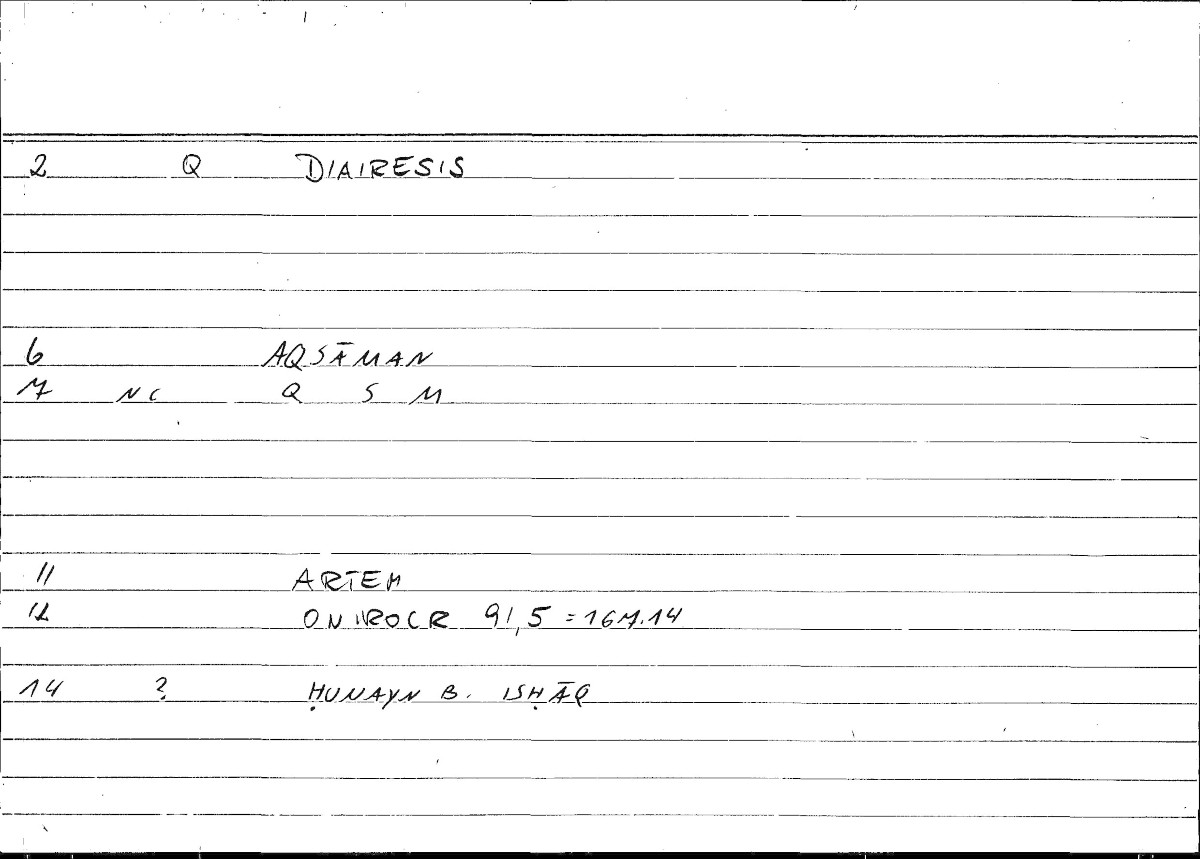 2 Q DIAIRESIS
6 AQSĀMAN
7 NC Q S M
11 ARTEM
12 ONIROCR 91,5 = 167.14
14 ? ḤUNAYN B. ISḤĀQ